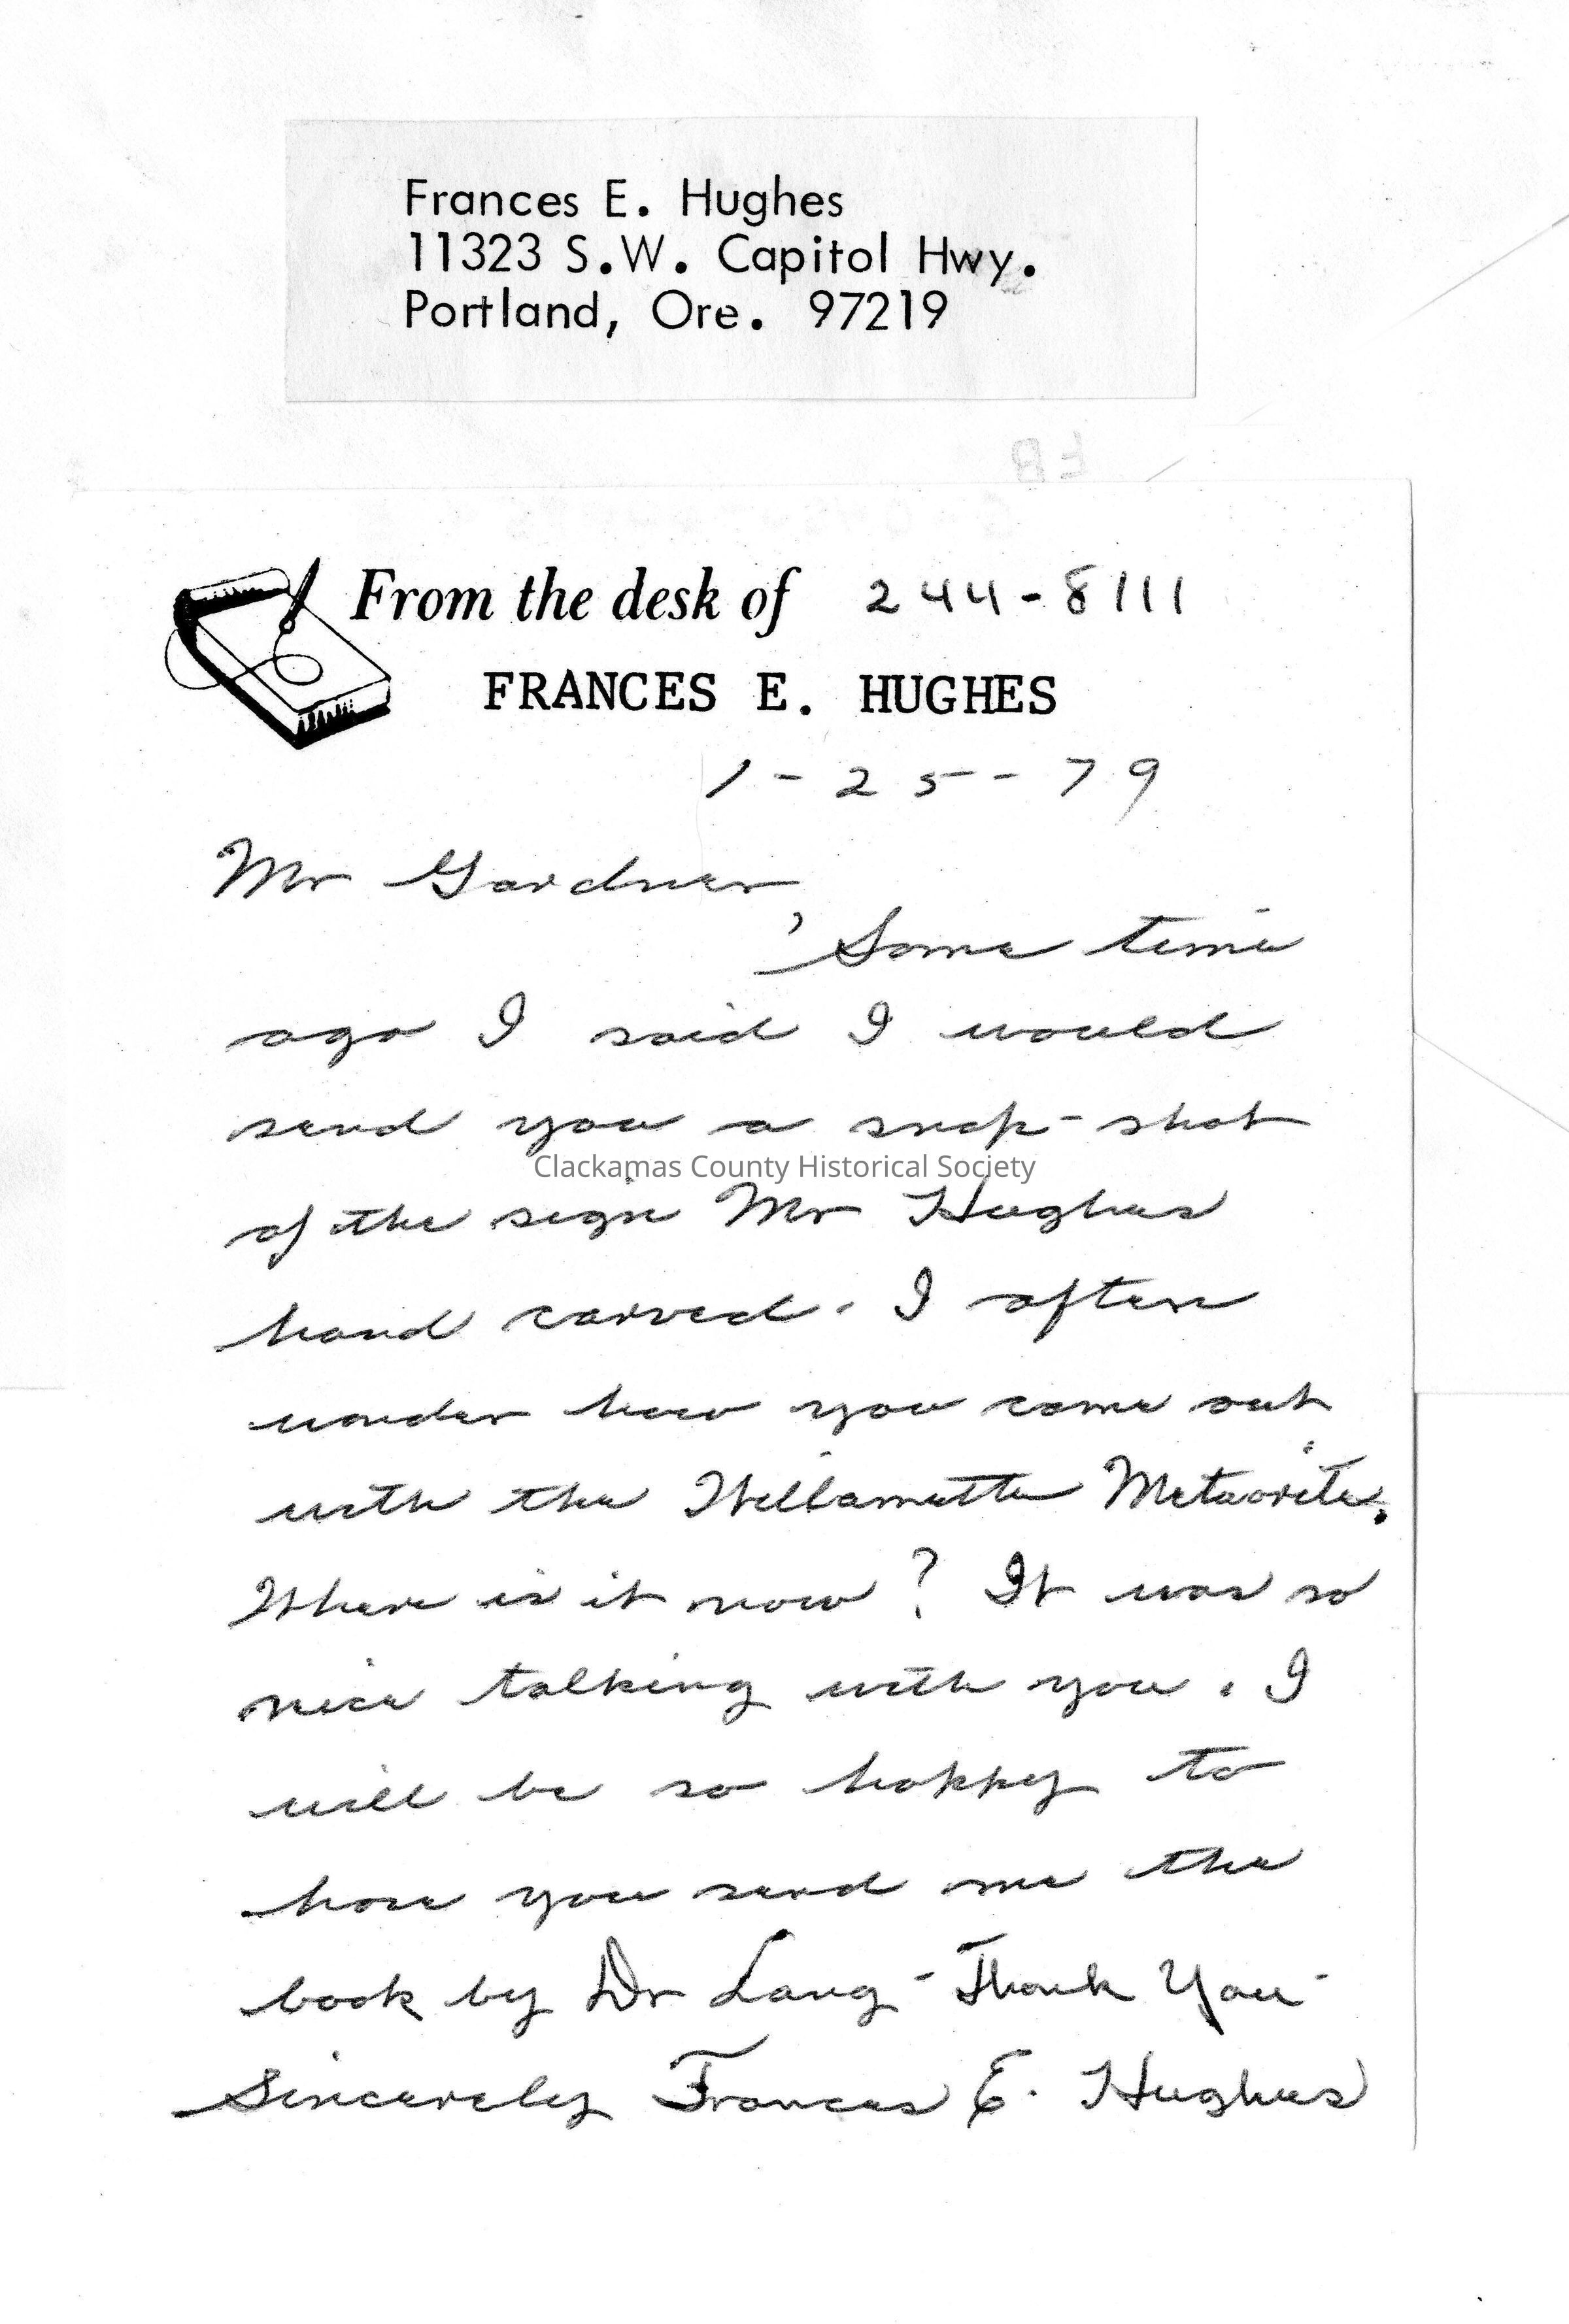 Frances E. Hughes
11323 S.W. Capitol Hwy.
Portland, Ore. 97219
From the desk of 244-8111
FRANCES E. HUGHES
1-25-79
Mr Gardner,
Some time
ago I said I would
send you a snap-shot
Clackamas County Historical Society
of the sign Mr Hughes
hand carved. I often
wonder how you come out
with the Willamette Meteorite.
Where is it now? It was so
nice talking with you. I
will be so happy to
have you send me the
book by Dr Lang - Thank You -
Sincerely Frances E. Hughes